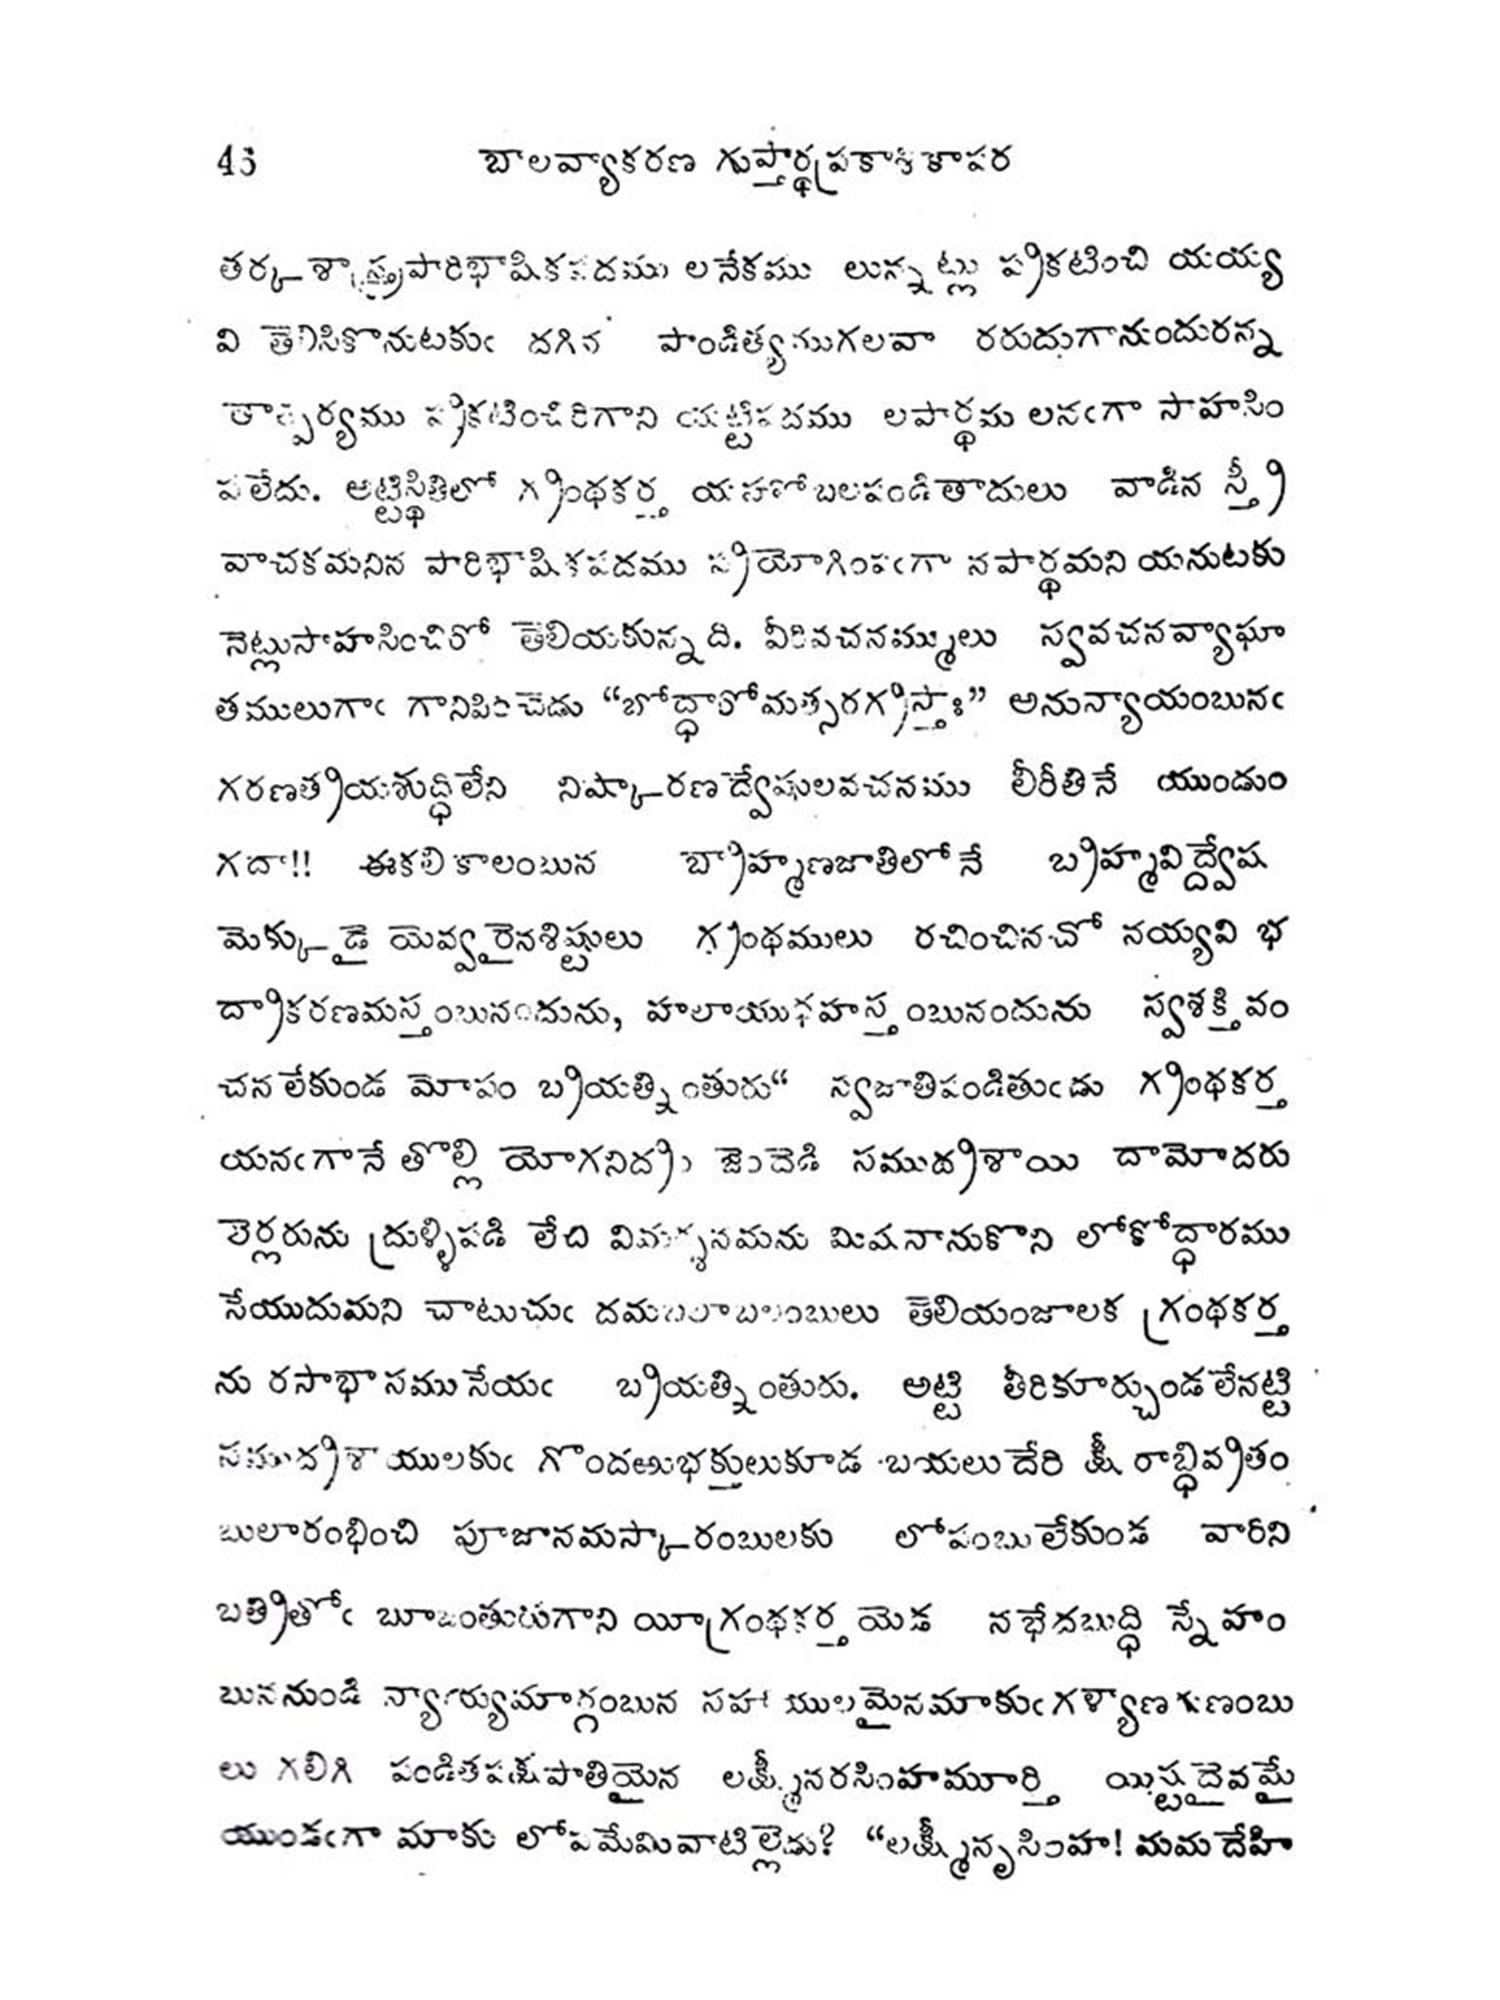 43 బాలవ్యాకరణ గుప్తార్థప్రకాశికాపర
తర్కశాస్త్రపారిభాషికపదము లనేకము లున్నట్లు ప్రకటించి యయ్య
వి తెలిసికొనుటకుఁ దగిన పాండిత్యముగలవా రరుదుగానుందురన్న
తాత్పర్యము ప్రకటించిరిగాని యట్టిపదము లపార్థము లనఁగా సాహసిం
పలేదు. అట్టిస్థితిలో గ్రంథకర్త యహోబలపండితాదులు వాడిన స్త్రీ
వాచకమనిన పారిభాషికపదము ప్రయోగింపఁగా నపార్థమని యనుటకు
నెట్లుసాహసించిరో తెలియకున్నది. వీరివచనమ్ములు స్వవచనవ్యాఘా
తములుగాఁ గానిపించెడు “బోద్ధారోమత్సరగ్రస్తాః” అనున్యాయంబునఁ
గరణత్రయశుద్ధిలేని నిష్కారణద్వేషులవచనము లీరీతినే యుండుం
గదా!! ఈకలికాలంబున బ్రాహ్మణజాతిలోనే బ్రహ్మవిద్ద్వేష
మెక్కుడై యెవ్వరైనశిష్టులు గ్రంథములు రచించినచో నయ్యవి భ
ద్రాకరణమస్తంబునందును, హలాయుధహస్తంబునందును స్వశక్తివం
చనలేకుండ మోపం బ్రయత్నింతురు“ స్వజాతిపండితుఁడు గ్రంథకర్త
యనఁగానే తొల్లి యోగనిద్రం జెందెడి సముద్రశాయి దామోదరు
లెర్లరును ద్రుళ్ళిపడి లేచి విమర్శనమను మిషనానుకొని లోకోద్ధారము
సేయుదుమని చాటుచుఁ దమబలాబలంబులు తెలియంజాలక గ్రంథకర్త
ను రసాభాసముసేయఁ బ్రయత్నింతురు. అట్టి తీరికూర్చుండలేనట్టి
సముద్రశాయులకుఁ గొందఱుభక్తులుకూడ బయలుదేరి క్షీరాబ్ధివ్రతం
బులారంభించి పూజానమస్కారంబులకు లోపంబులేకుండ వారిని
బత్రితోఁ బూజింతురుగాని యీగ్రంథకర్తయెడ నభేదబుద్ధి స్నేహం
బుననుండి న్యార్య్యుమార్గంబున సహాయులమైనమాకుఁ గళ్యాణగుణంబు
లు గలిగి పండితపక్షపాతియైన లక్ష్మీనరసింహమూర్తి యిష్టదైవమై
యుండఁగా మాకు లోపమేమివాటిల్లెడు? “లక్ష్మీనృసింహ! మమదేహి